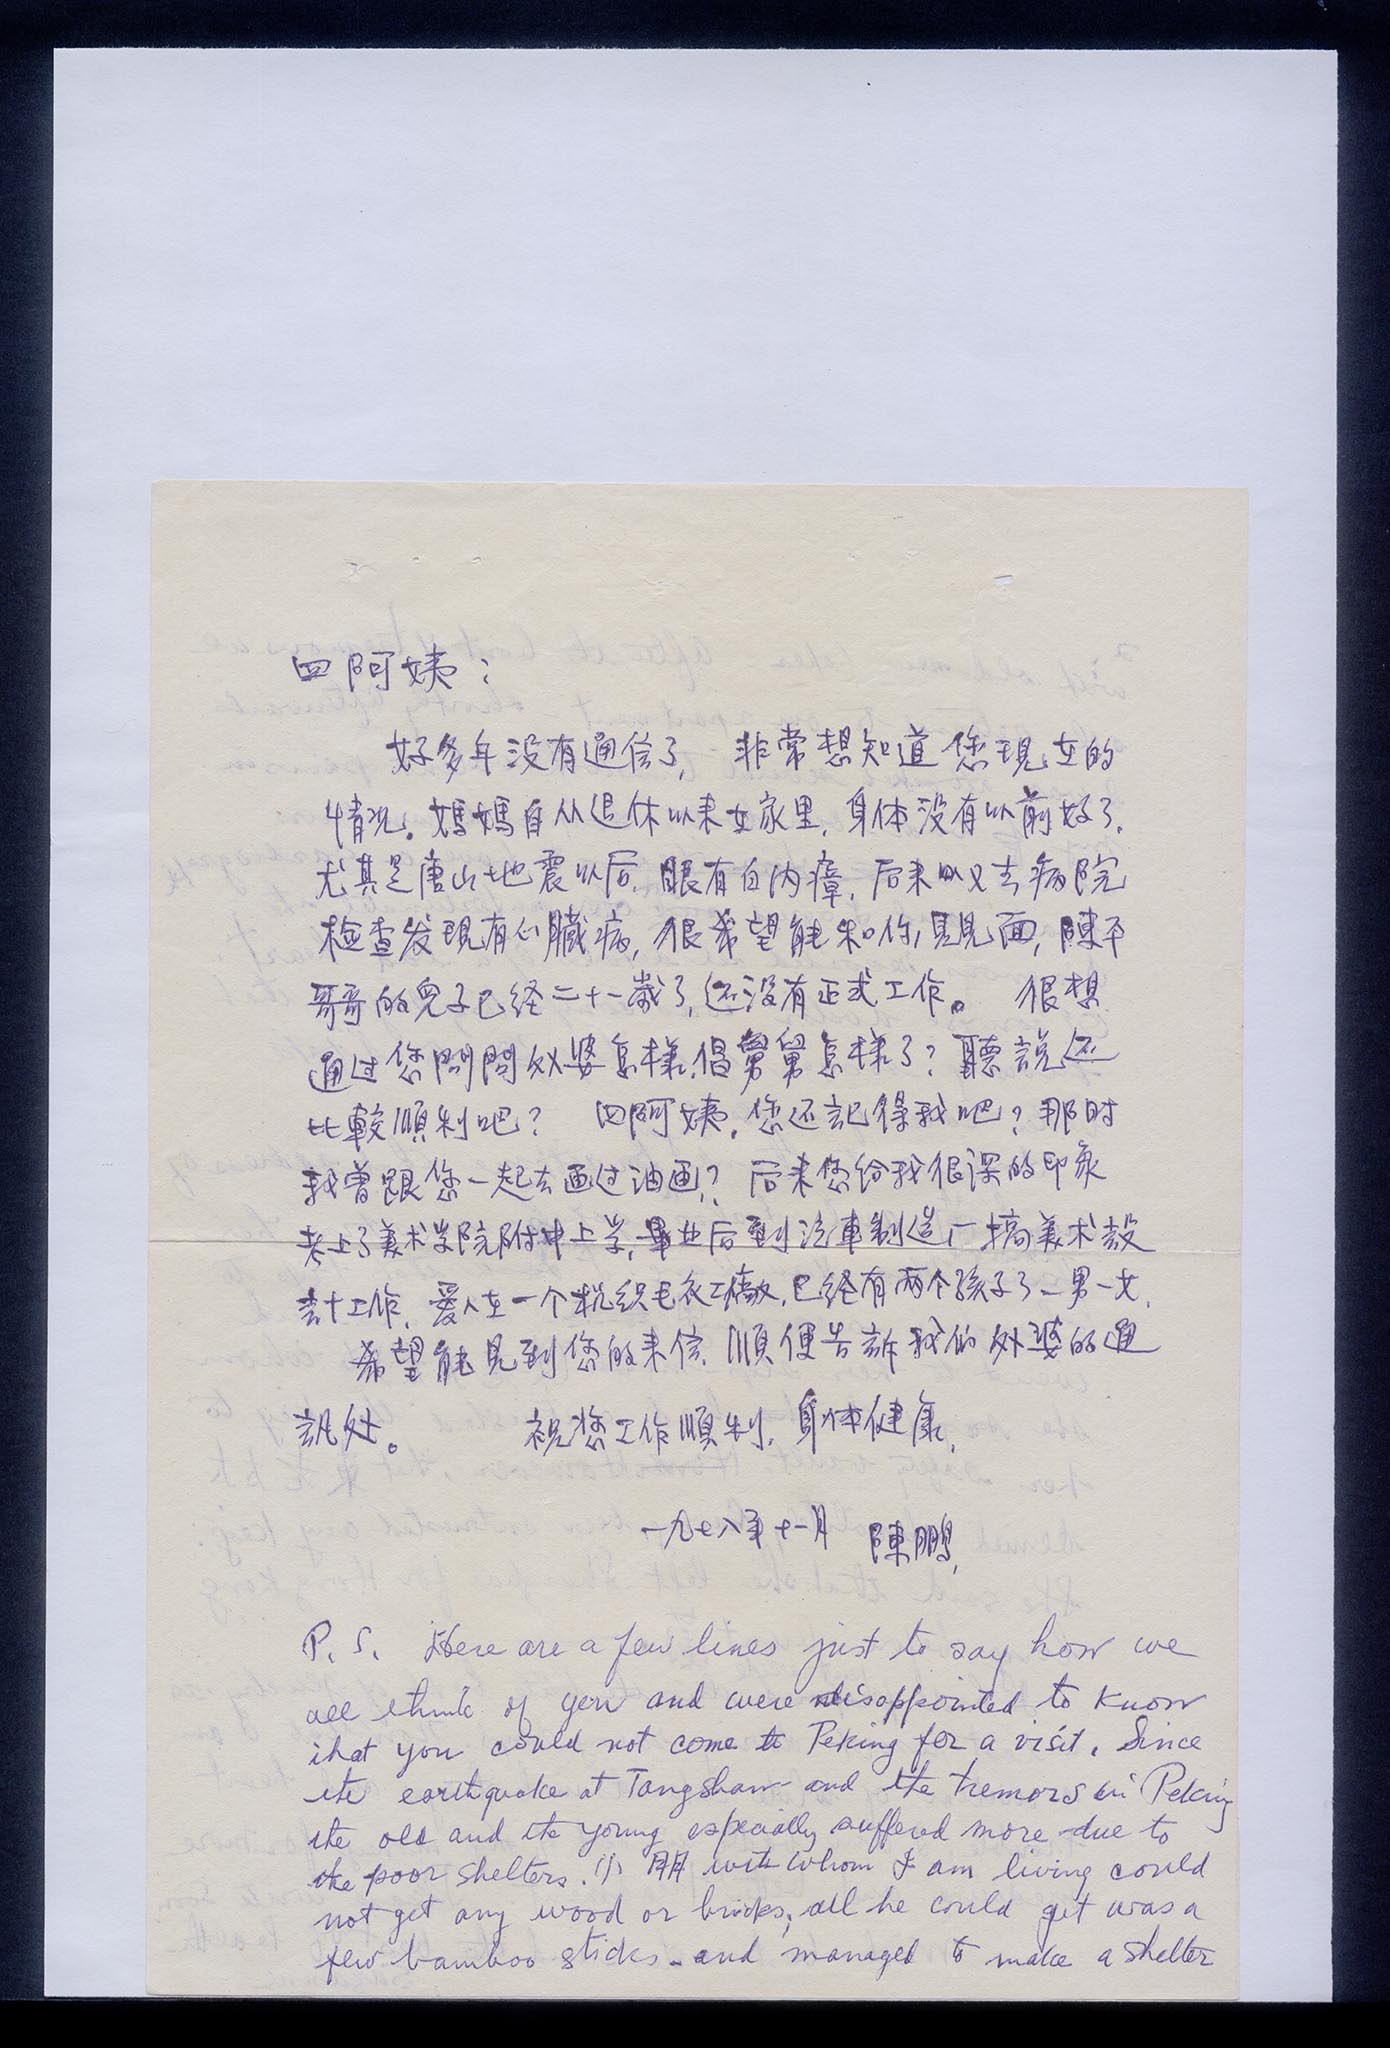 四阿姨：
好多年没有通信了，非常想知道您現在的
情况。媽媽自从退休以来在家里，身体没有以前好了，
尤其是唐山地震以后，眼有白内瘴，后来又去病院
检查发現有心臟病，很希望能和你見見面，陳平
哥哥的兒子已经二十一歲了，还没有正式工作。 很想
通过您問問外婆怎樣，倡舅舅怎樣了？聽説还
比較順利吧？ 四阿姨，您还記得我吧？那时
我曾跟您一起去画过油画？后来您给我很深的印象
考上了美术学院附中上学，畢业后到汽車制造厂搞美术設
計工作，爱人在一个机织毛衣工厰，已经有两个孩子了一男一女，
希望能見到您的来信，順便告訴我们外婆的通
訊处。 祝您工作順利，身体健康，
一九七八年十一月 陳鵬，
P.S. Here are a few lines just to say how we
all think of you and were disappointed to know
that you could not come to Peking for a visit. Since
the earthquake at Tangshan and the tremors in Peking
the old and the young especially suffered more due to
the poor shelters. 小朋 with whom I am living could
not get any wood or bricks, all he could get was a
few bamboo sticks and managed to make a shelter